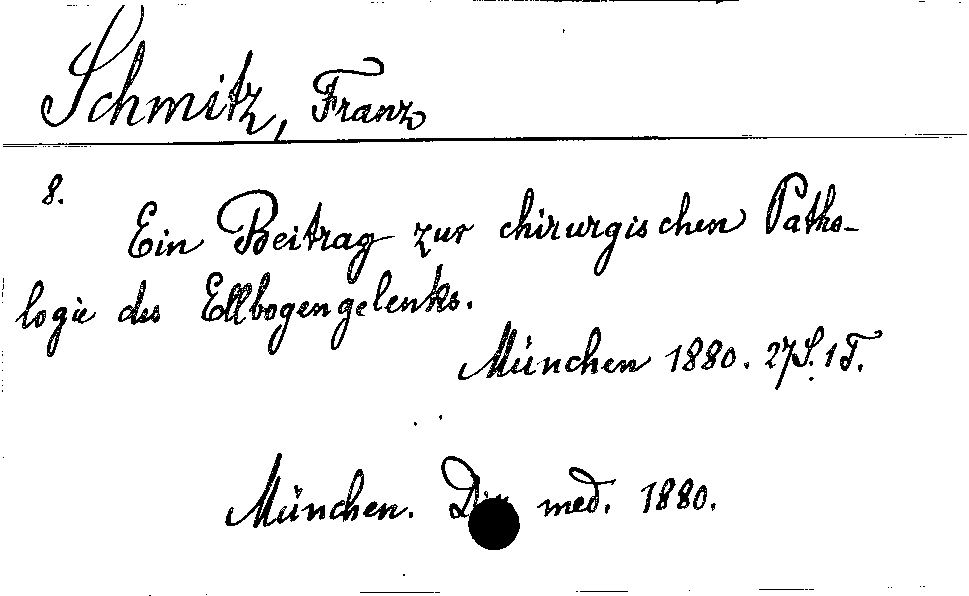 Schmitz, Franz
8.
Ein Beitrag zur chirurgischen Patho-
logie des Ellbogengelenks.
München 1880. 27 S. 1 T.
München. Dis med. 1880.